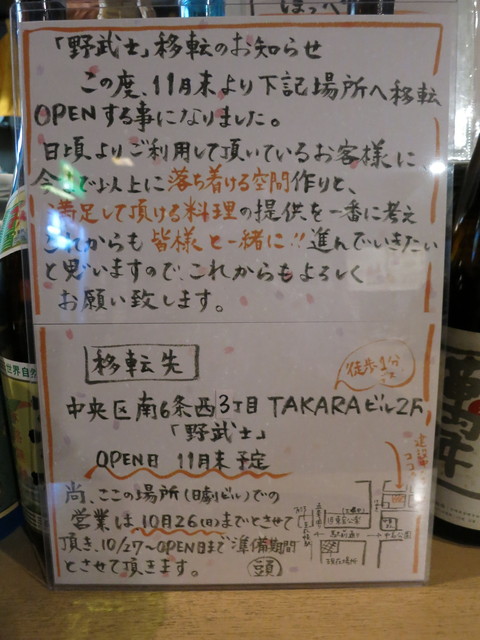 「野武士」移転のお知らせ
この度、11月末より下記場所へ移転
OPENする事になりました。
日頃よりご利用して頂いているお客様に、
今まで以上に落ち着ける空間作りと、
満足して頂ける料理の提供を一番に考え
これからも皆様と一緒に!!進んでいきたい
と思いますので、これからもよろしく
お願い致します。
移転先
徒歩1分
中央区南6条西3丁目 TAKARAビル2F
「野武士」
OPEN日 11月末予定
尚、ここの場所(日劇ビル)での
営業は10月26(日)までとさせて
頂き、10/27〜OPEN日まで準備期間
とさせて頂きます。
頭
駅前通り
現在場所
世界自然